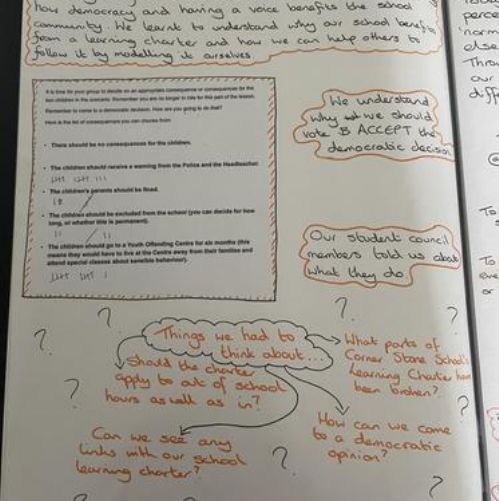 how democracy and having a voice benefits the school
community. We learnt to understand why our school benefits
from a learning charter and how we can help others to
follow it by modelling it ourselves
It is time for your group to decide on an appropriate consequence or consequences for the
two children in the scenario. Remember you are no longer in role for this part of the lesson.
Remember to come to a democratic decision. How are you going to do that?
Here is the list of consequences you can choose from:
• There should be no consequences for the children.
• The children should receive a warning from the Police and the Headteacher.
• The children's parents should be fined.
18
• The children should be excluded from the school (you can decide for how
long, or whether this is permanent).
• The children should go to a Youth Offending Centre for six months (this
means they would have to live at the Centre away from their families and
attend special classes about sensible behaviour).
We understand
why we should
vote & ACCEPT the
democratic decision
Our student council
members told us about
what they do
Things we had to
think about...
Should the charter
apply to out of school
hours as well as in?
What parts of
Corner Stone School's
Learning Charter have
been broken?
Can we see any
links with our school
learning charter?
How can we come
to a democratic
opinion?
? ? ? ? ? ? ? ? ?
norm
else
Throu
our
diff
To
To
or